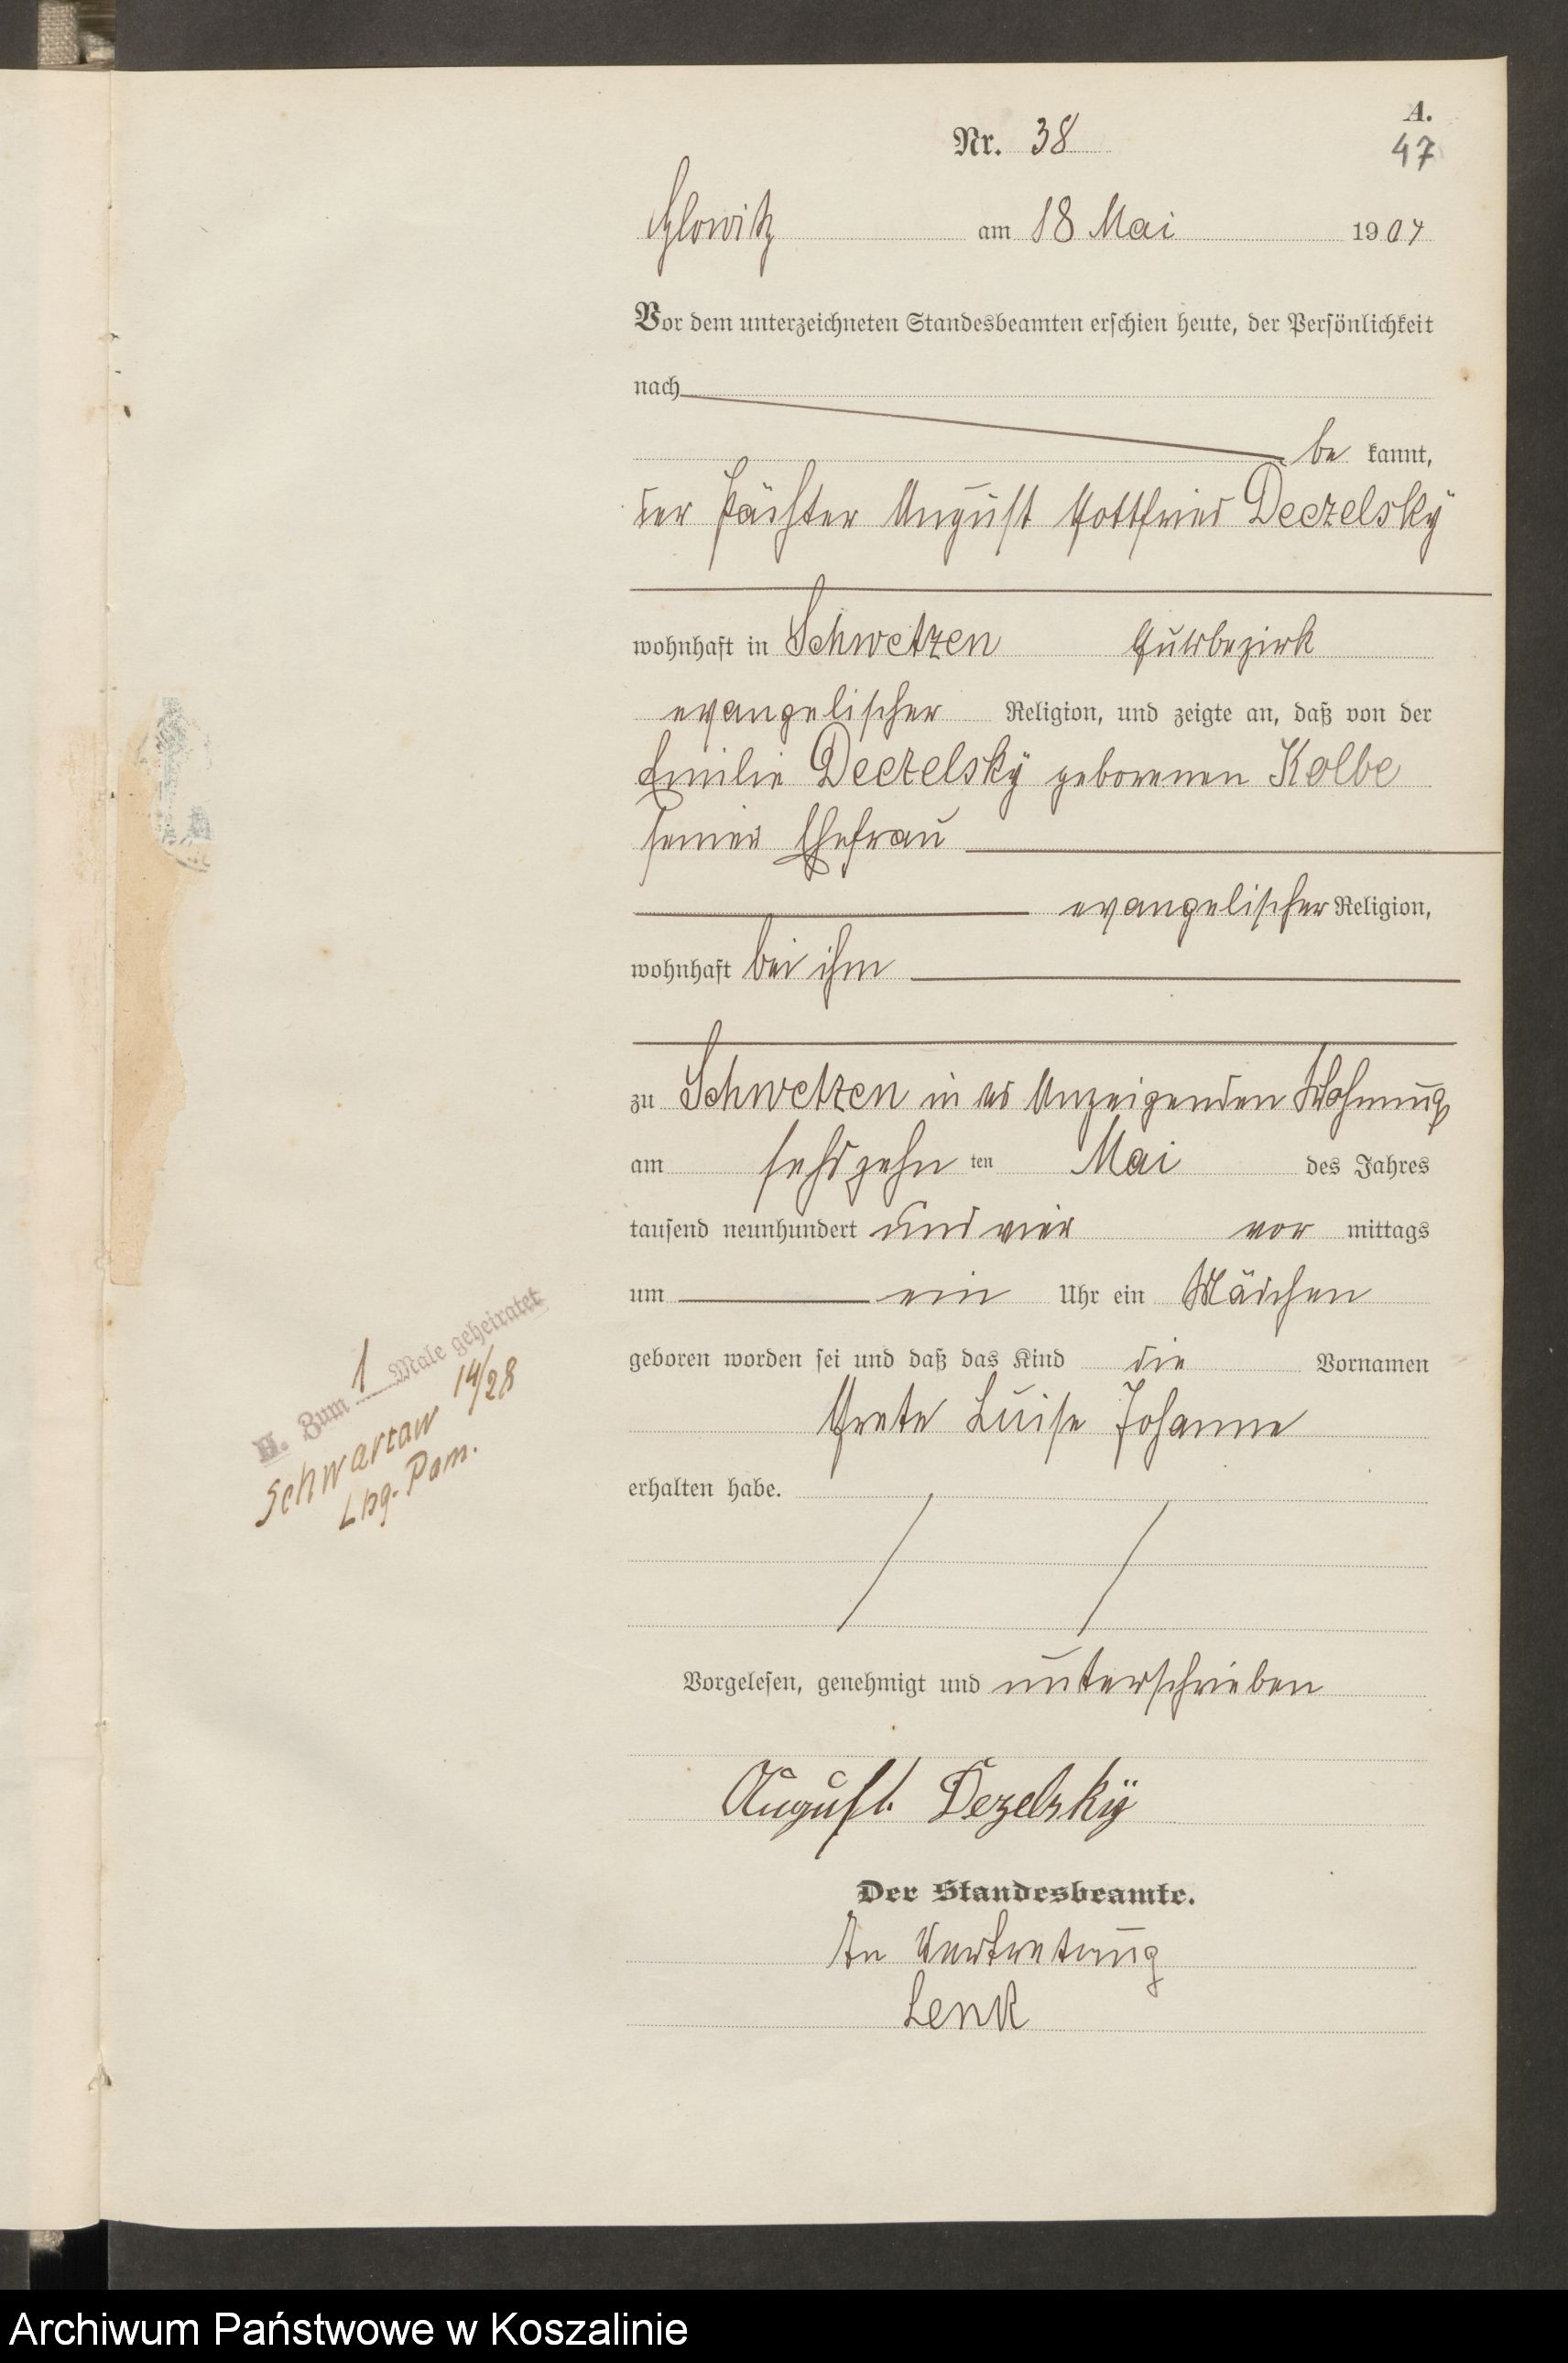 A.
Nr. 38
47
Glowitz am 18 Mai 1904
Vor dem unterzeichneten Standesbeamten erschien heute, der Persönlichkeit
nach
be kannt,
der Pächter August Gottfried Deczelsky
wohnhaft in Schwetzen Gutsbezirk
evangelischer Religion, und zeigte an, daß von der
Emilie Deczelsky geborenen Kolbe
seiner Ehefrau
evangelischer Religion,
wohnhaft bei ihm
zu Schwetzen in des Anzeigenden Wohnung
am sechszehn ten Mai des Jahres
tausend neunhundert und vier vor mittags
um ein Uhr ein Mädchen
geboren worden sei und daß das Kind die Vornamen
Grete Luise Johanne
erhalten habe.
H. Zum 1 Male geheiratet
Schwartow 14/28
Lbg. Pom.
Vorgelesen, genehmigt und unterschrieben
August Dezelsky
Der Standesbeamte.
In Vertretung
Lenk
Archiwum Państwowe w Koszalinie